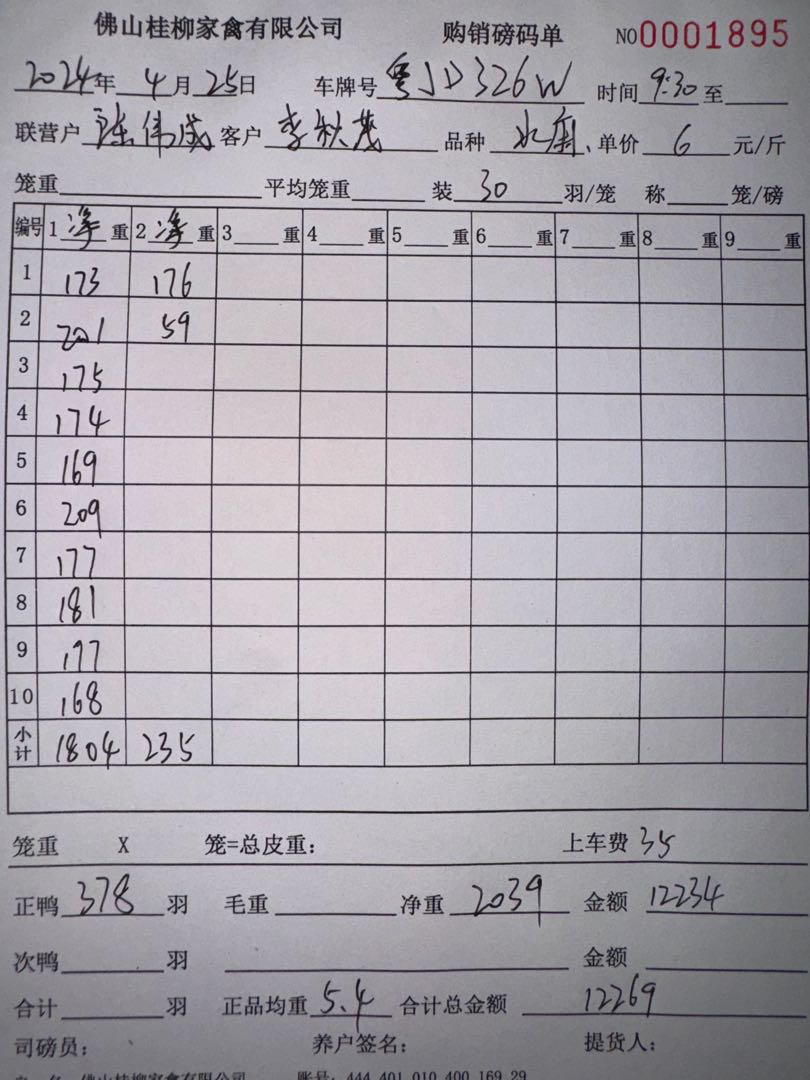 佛山桂柳家禽有限公司 购销磅码单 NO0001895
2024年 4月25日 车牌号 粤JD326W 时间 9:30 至
联营户 陈伟成 客户 李秋茂 品种 水 单价 6 元/斤
笼重 平均笼重 装 30 羽/笼 称 笼/磅
编号 1 净 重 2 净 重 3 重 4 重 5 重 6 重 7 重 8 重 9 重
1 173 176
2 201 59
3 175
4 174
5 169
6 209
7 177
8 181
9 177
10 168
小计 1804 235
笼重 X 笼=总皮重: 上车费 35
正鸭 378 羽 毛重 净重 2039 金额 12234
次鸭 羽 金额
合计 羽 正品均重 5.4 合计总金额 12269
司磅员: 养户签名: 提货人:
佛山桂柳家禽有限公司 账号: 444 401 010 400 169 29